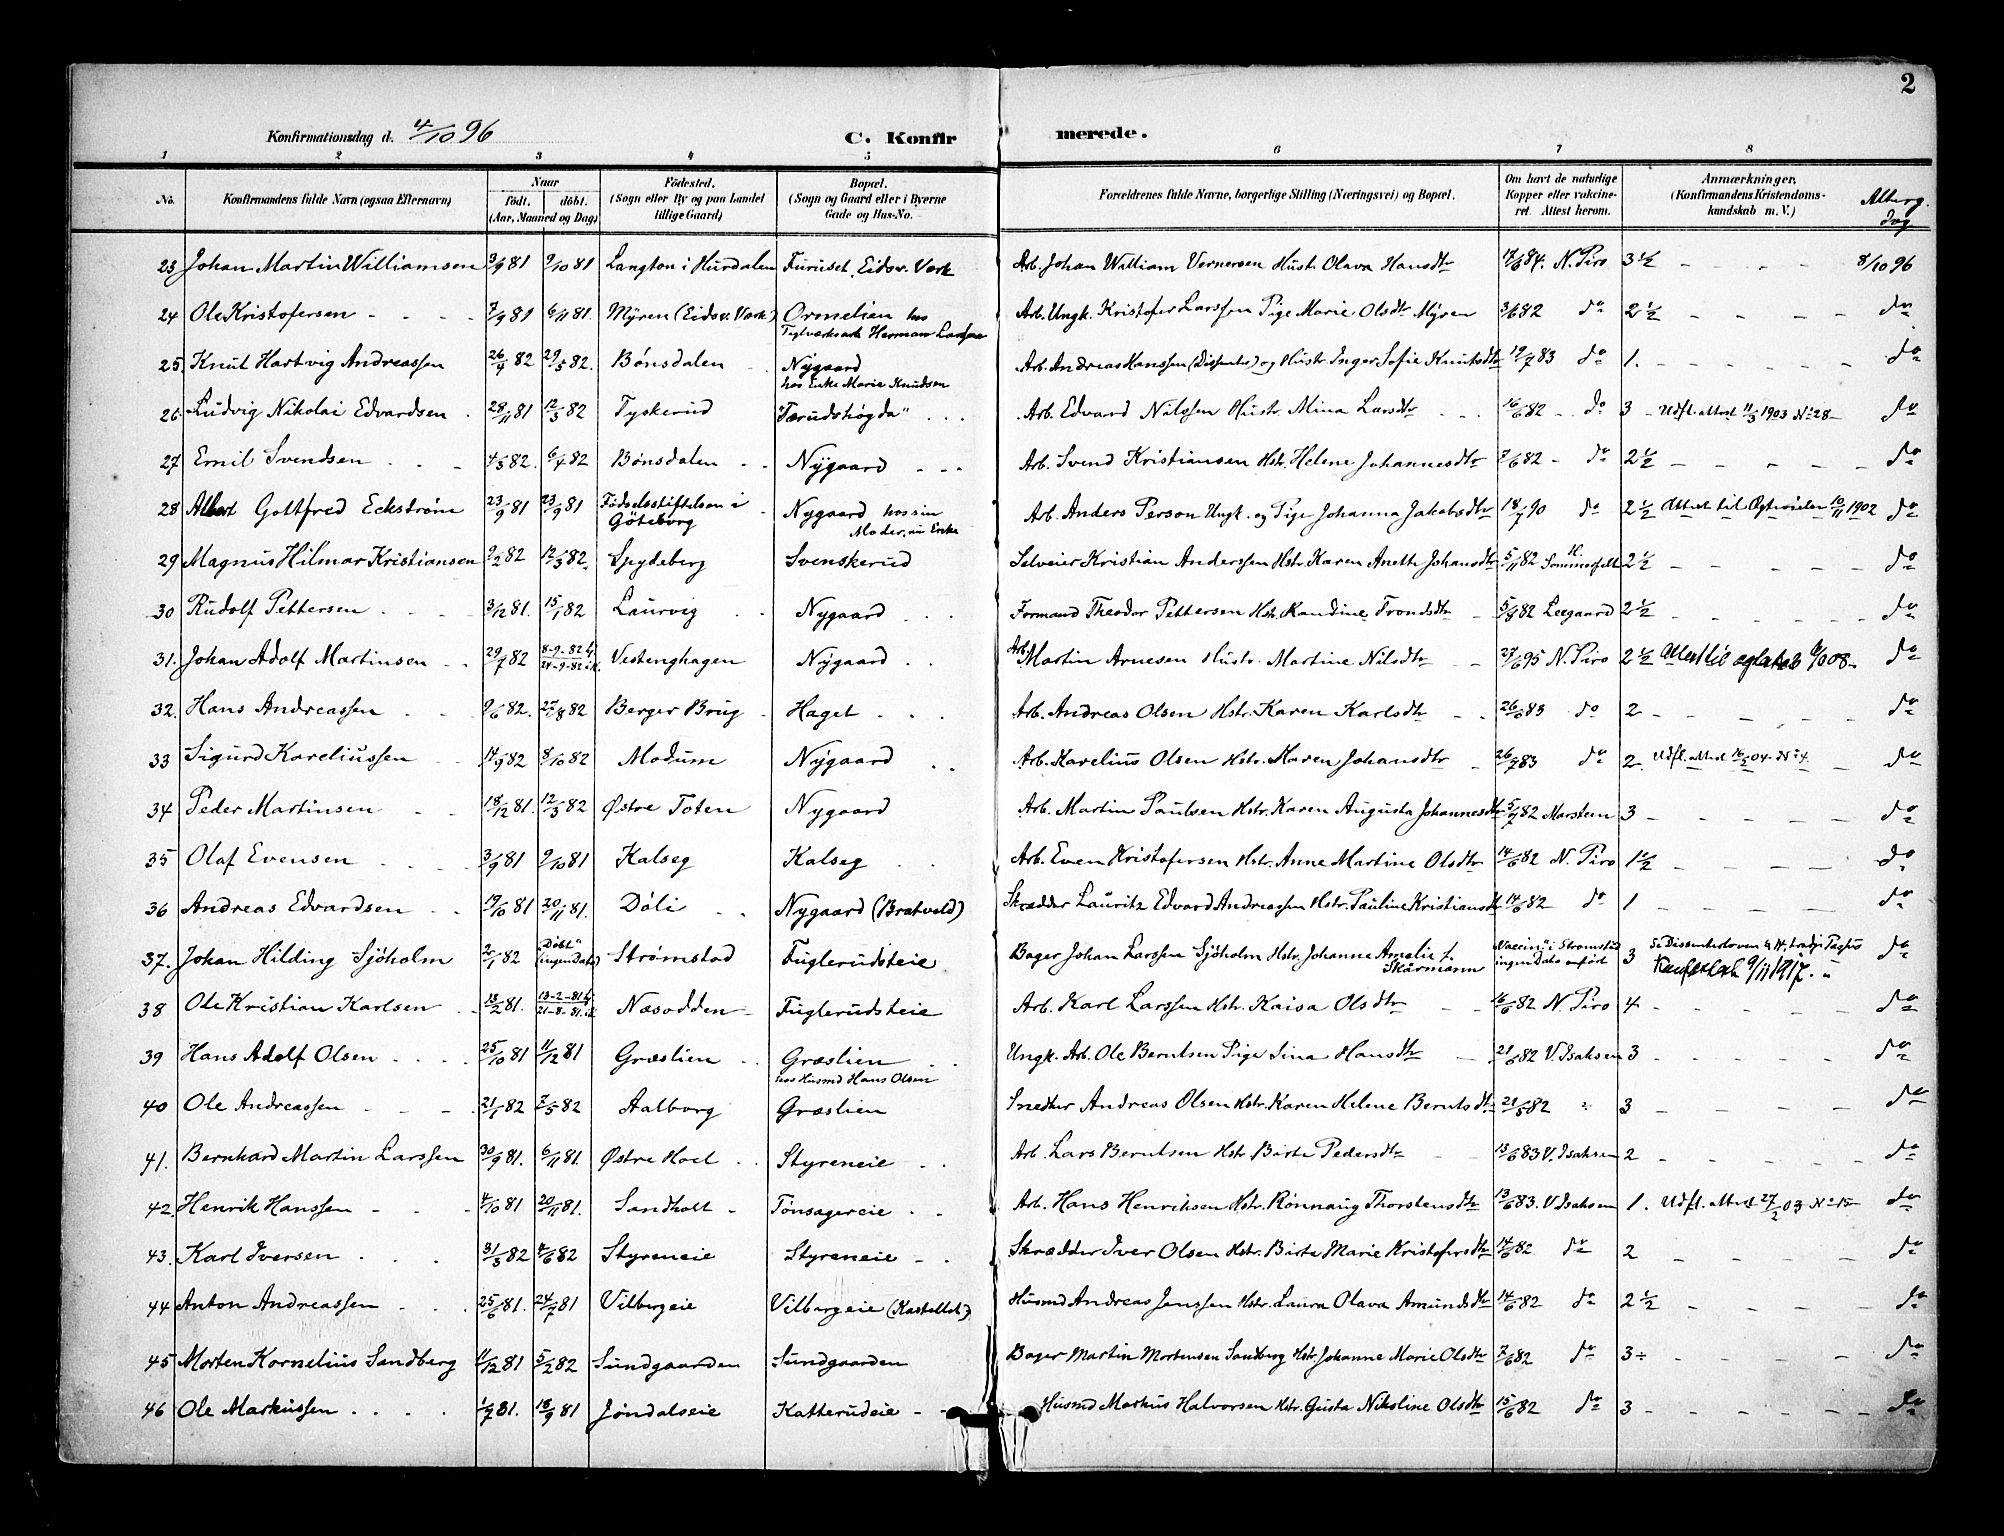 2
Konfirmationsdag d. 4/10 96
C. Konfirmerede.
1 2 3 4 5 6 7 8
No. Konfirmandens fulde Navn (ogsaa Efternavn) Naar født. døbt. (Aar, Maaned og Dag) Fødested. (Sogn eller By og paa Landet tillige Gaard) Bopæl. (Sogn og Gaard eller i Byerne Gade og Hus-No. Forældrenes fulde Navne, borgerlige Stilling (Næringsvei) og Bopæl. Om havt de naturlige Kopper eller vaccineret. Attest herom. Anmærkninger, (Konfirmandens Kristendomskundskab m. V.) Altergang
23 Johan Martin Williamsen 3/9 81 9/10 81 Langton i Hurdalen Furuset, Eidsv. Værk Arb. Johan William Vernersen Hustr. Olava Hansdtr 17/6 84. N. Piro 3 1/2 - - - - 8/10 96
24 Ole Kristofersen 7/9 81 6/11 81. Myren (Eidsv. Værk) Ornelien hos Teglværksarb. Herman Larssen Arb. Ungk. Kristofer Larssen Pige Marie Olsdtr Myren 3/6 82 do 2 1/2 - - - - do
25 Knut Hartvig Andreassen 26/4 82 29/5 82. Bønsdalen Nygaard hos Enke Marie Knudsen Arb. Andreas Hanssen (Dissenter) og Hustr. Inger Sofie Knutsdtr 19/7 83 do 1. - - - - do
26 Ludvig Nikolai Edvardsen 28/11 81 12/3 82 Tyskerud "Tærudshøgda" Arb. Edvard Nilssen Hustr. Mina Larsdtr 16/6 82 - do 3 - Udfl. attest 11/3 1903 No 28 - do
27 Emil Svendsen 4/3 82. 6/4 82 Bønsdalen Nygaard Arb. Svend Kristiansen Hstr. Helene Johannesdtr 7/6 82 - do 2 1/2 - - - - do
28 Albert Gottfred Eckstrøm 23/9 81 23/9 81 Fødselsstiftelsen i Göteborg Nygaard hos sin Moder, nu Enke Arb. Anders Person Ungk. og Pige Johanna Jakobsdtr 18/7 90 do 2 1/2 Attest til 10/11 1902 do
29 Magnus Hilmar Kristiansen 9/2 82 12/3 82. Spydeberg Svenskerud Selveier Kristian Anderssen Hstr. Karen Anette Johansdtr 5/11 82 H. Sommerfelt 2 1/2 - - - - do
30 Rudolf Pettersen 3/12 81. 15/1 82 Laurvig Nygaard Formand Theodor Pettersen Hstr. Randine Trondsdtr 5/8 82 Leegaard 2 1/2 - - - - do
31. Johan Adolf Martinsen 29/7 82 8-9-82 hj. 24-9-82 i K. Vestenghagen Nygaard Arb. Martin Arnesen Hustr. Martine Nilsdtr 27/6 95 N. Piro 2 1/2 Attest til do
32. Hans Andreassen 9/6 82. 27/8 82 Berger Brug Haget Arb. Andreas Olsen Hstr. Karen Karlsdtr 26/6 83 do 2 - - - - do
33 Sigurd Kareliussen 14/9 82 8/10 82 Modum Nygaard Arb. Karelius Olsen Hstr. Maren Johansdtr 26/7 83 do 2. Udfl. attest 16/5 04. No 4 do
34 Peder Martinsen 18/12 81. 12/3 82 Østre Toten Nygaard Arb. Martin Paulsen Hstr. Karen Augusta Johannesdtr 5/7 82 Marstein 3 - - - - do
35 Olaf Evensen 3/9 81 9/10 81 Kalseg Kalseg Arb. Even Kristofersen Hstr. Anne Martine Olsdtr 14/6 82 N. Piro 1 1/2 - - - - do
36 Andreas Edvardsen 19/10 81 20/11 81. Døli Nygaard (Bratvold) Skrædder Lauritz Edvard Andreassen Hstr. Pauline Kristiansdtr 14/6 82 do 1 - - - - do
37. Johan Hilding Sjöholm 2/1 82 "Døbt" (ingen Dato) Strømstad Fuglerudsteie Bager Johan Larssen Sjöholm Hstr. Johanne Amalie f. Skårmann "Vaccin" i Strømstad ingen Dato anført 3 9/11 1917. do
38 Ole Kristian Karlsen 13/2 81. 13-2-81 hj. 21-8-81. i K. Næsodden Fuglerudsteie Arb. Karl Larssen Hstr. Kaisa Olsdtr 16/6 82 N. Piro 4 - - - - do
39 Hans Adolf Olsen 25/10 81 11/12 81 Græslien Græslien hos Husmd Hans Olsen Ungk. Arb. Ole Berntsen Pige Sina Hansdtr 21/6 82 V. Isaksen 3 - - - - do
40 Ole Andreassen 21/1 82 7/5 82 Aalborg Græslien Snedker Andreas Olsen Hstr. Karen Helene Berntsdtr 21/5 82 " 3 - - - - do
41. Bernhard Martin Larssen 30/9 81. 6/11 81. Østre Hoel Styreneie Arb. Lars Berntsen Hstr. Birte Pedersdtr 13/6 83 V. Isaksen 2 - - - - do
42 Henrik Hanssen 4/10 81 20/11 81. Sandholt Tønsagereie Arb. Hans Henriksen Hstr. Rønnaug Thorstensdtr 13/6 83. V. Isaksen 1. Udfl. attest 27/2 03 No 15 do
43. Karl Iversen 31/3 82 4/6 82 Styreneie Styreneie Skrædder Iver Olsen Hstr. Birte Marie Kristofersdtr 14/6 82 do 2 - - - - do
44 Anton Andreassen 25/6 81. 24/7 81 Vilbergeie Vilbergeie (Kastellet) Husmd Andreas Jenssen Hstr. Laura Olava Amundsdtr 14/6 82 do 2 1/2 - - - - do
45 Morten Kornelius Sandberg 11/12 81 5/2 82 Sundgaarden Sundgaarden Bager Martin Mortensen Sandberg Hstr. Johanne Marie Olsdtr 7/6 82 do 3 ÷ - - - - do
46 Ole Markussen 1/7 81. 18/9 81 Jøndalseie Katterudeie Husmd Markus Halvorsen Hstr. Gusta Nikoline Olsdtr 15/6 82 do 3 - - - - do